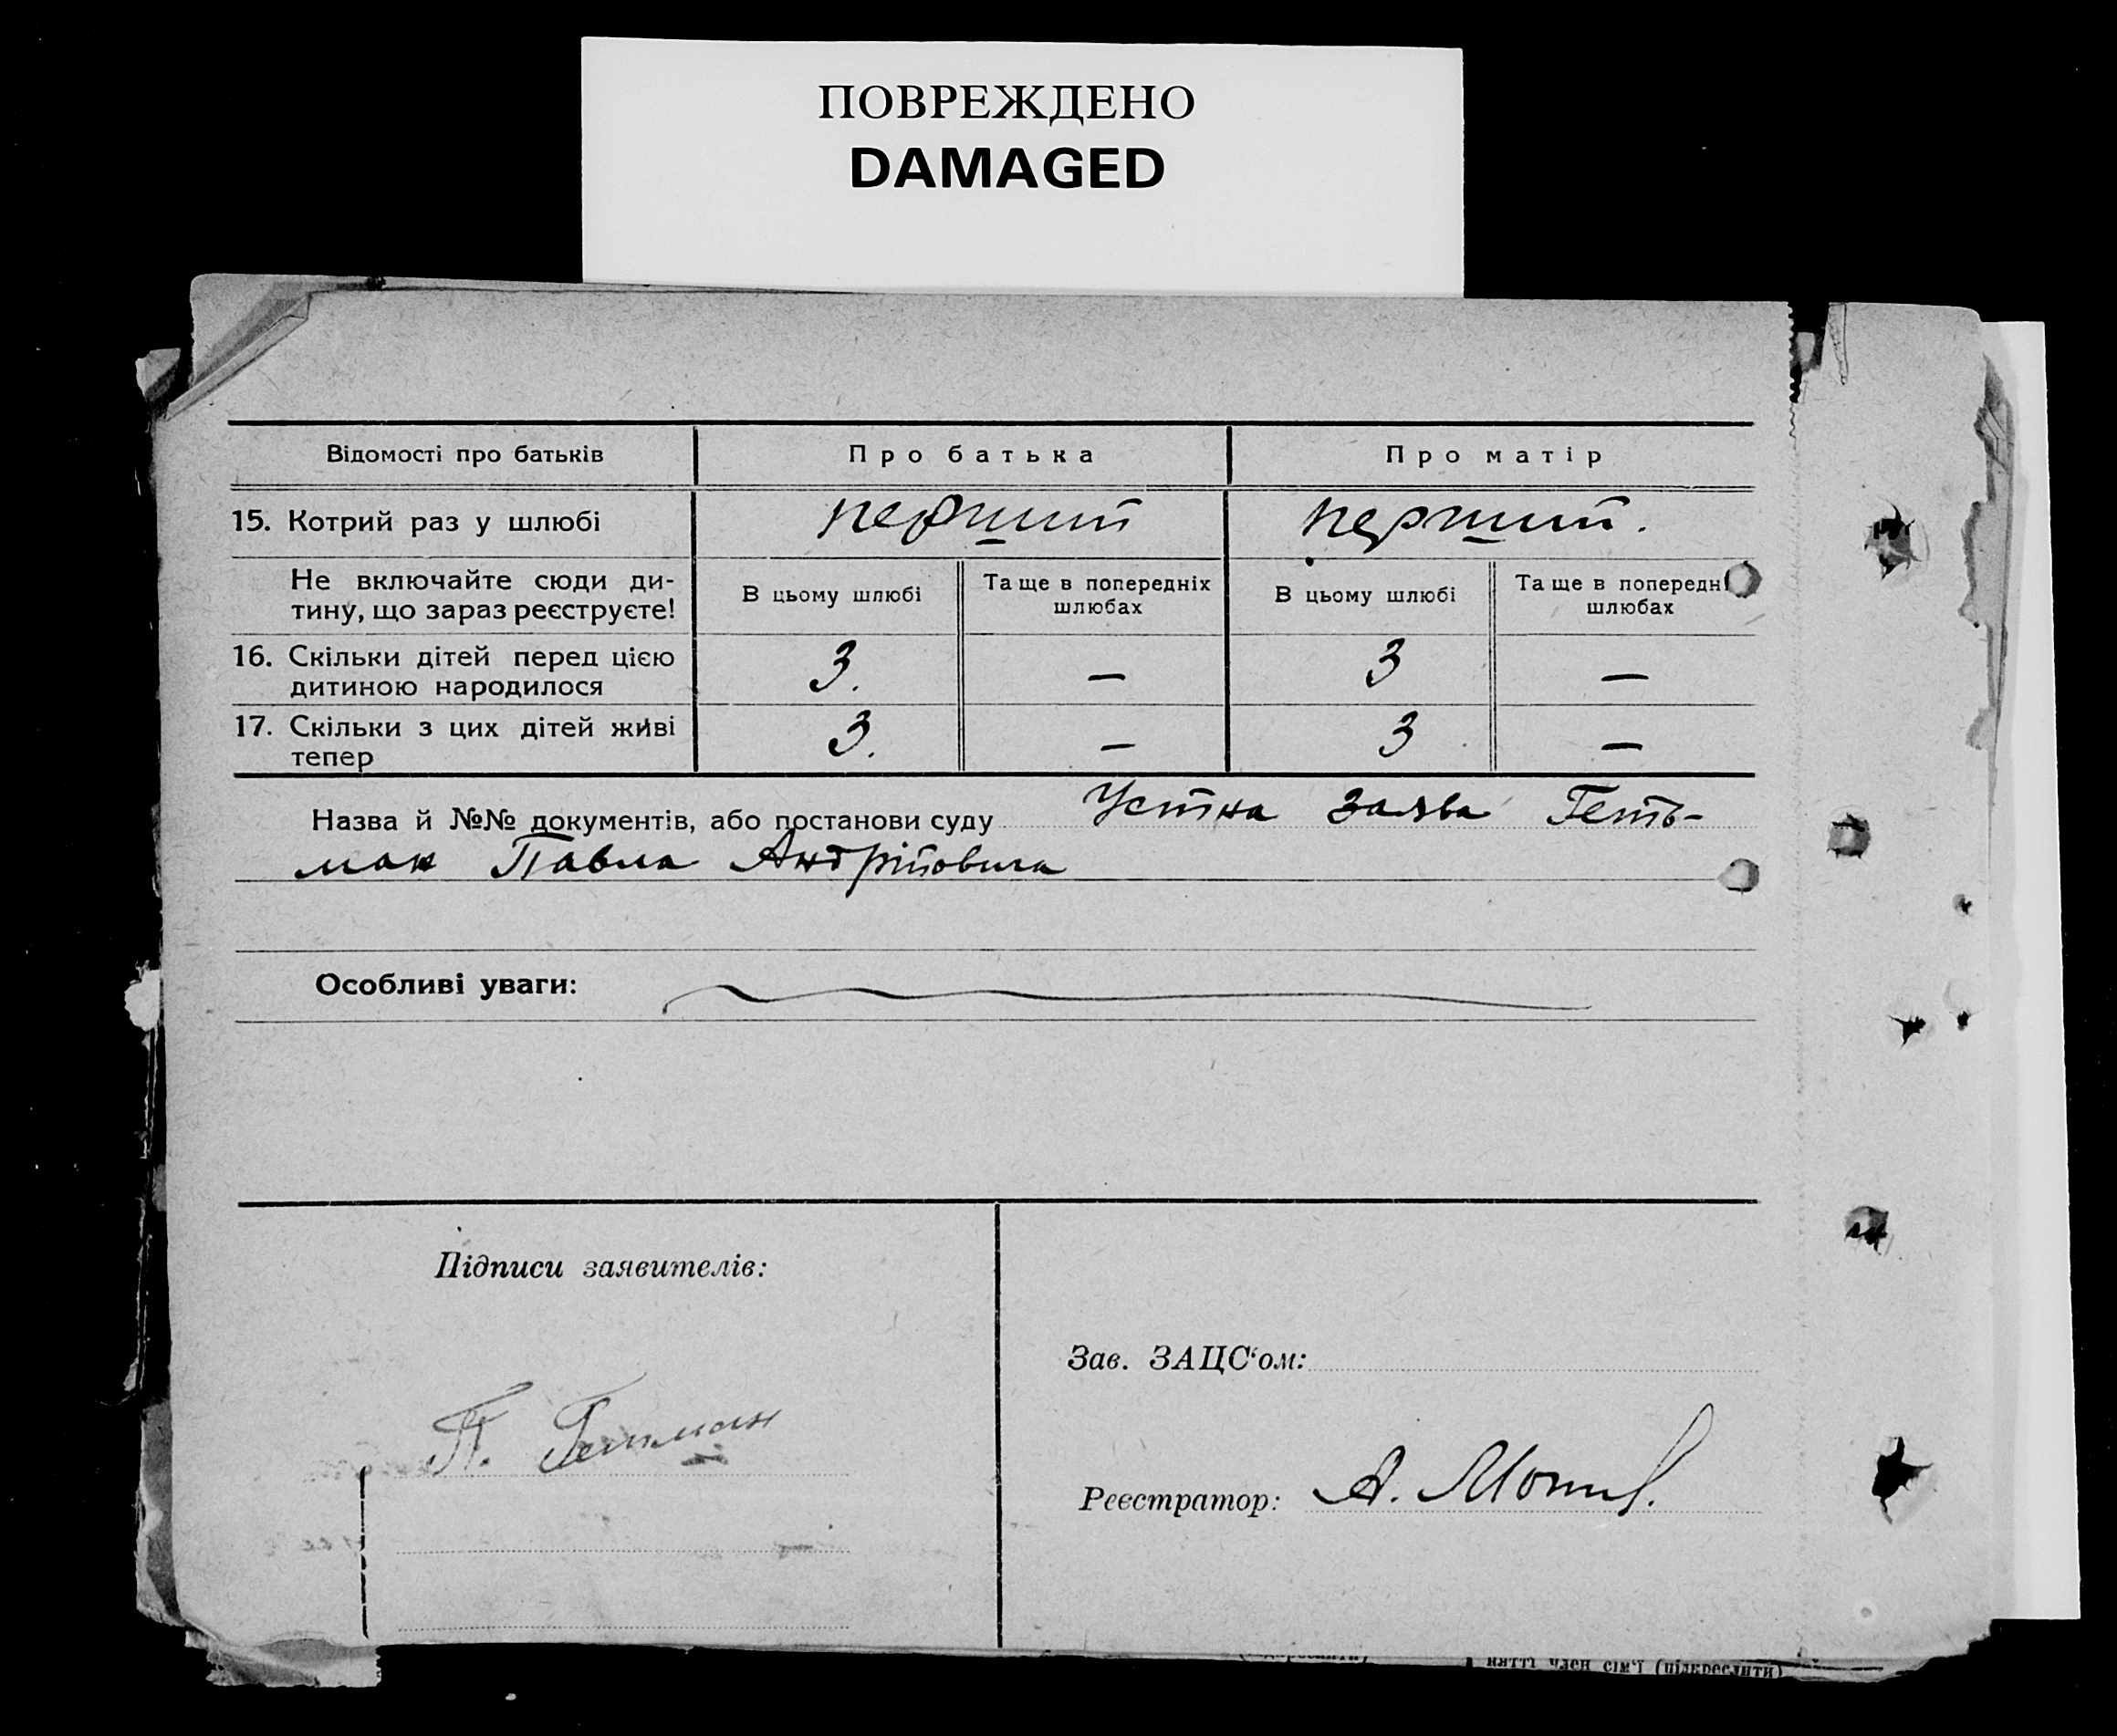 ПОВРЕЖДЕНО
DAMAGED
Відомості про батьків
Про батька
Про матір
15. Котрий раз у шлюбі
перший
перший.
Не включайте сюди ди-
тину, що зараз реєструєте!
В цьому шлюбі
Та ще в попередніх
шлюбах
В цьому шлюбі
Та ще в попередні
шлюбах
16. Скільки дітей перед цією
дитиною народилося
3.
—
3
—
17. Скільки з цих дітей живі
тепер
3.
—
3
—
Назва й №№ документів, або постанови суду Устна заява Геть-
ман Павла Андрійовича
Особливі уваги:
Підписи заявителів:
П. Гетман
Зав. ЗАЦС‘ом:
Реєстратор: А.
нятті член сім‘ї (підкреслити)